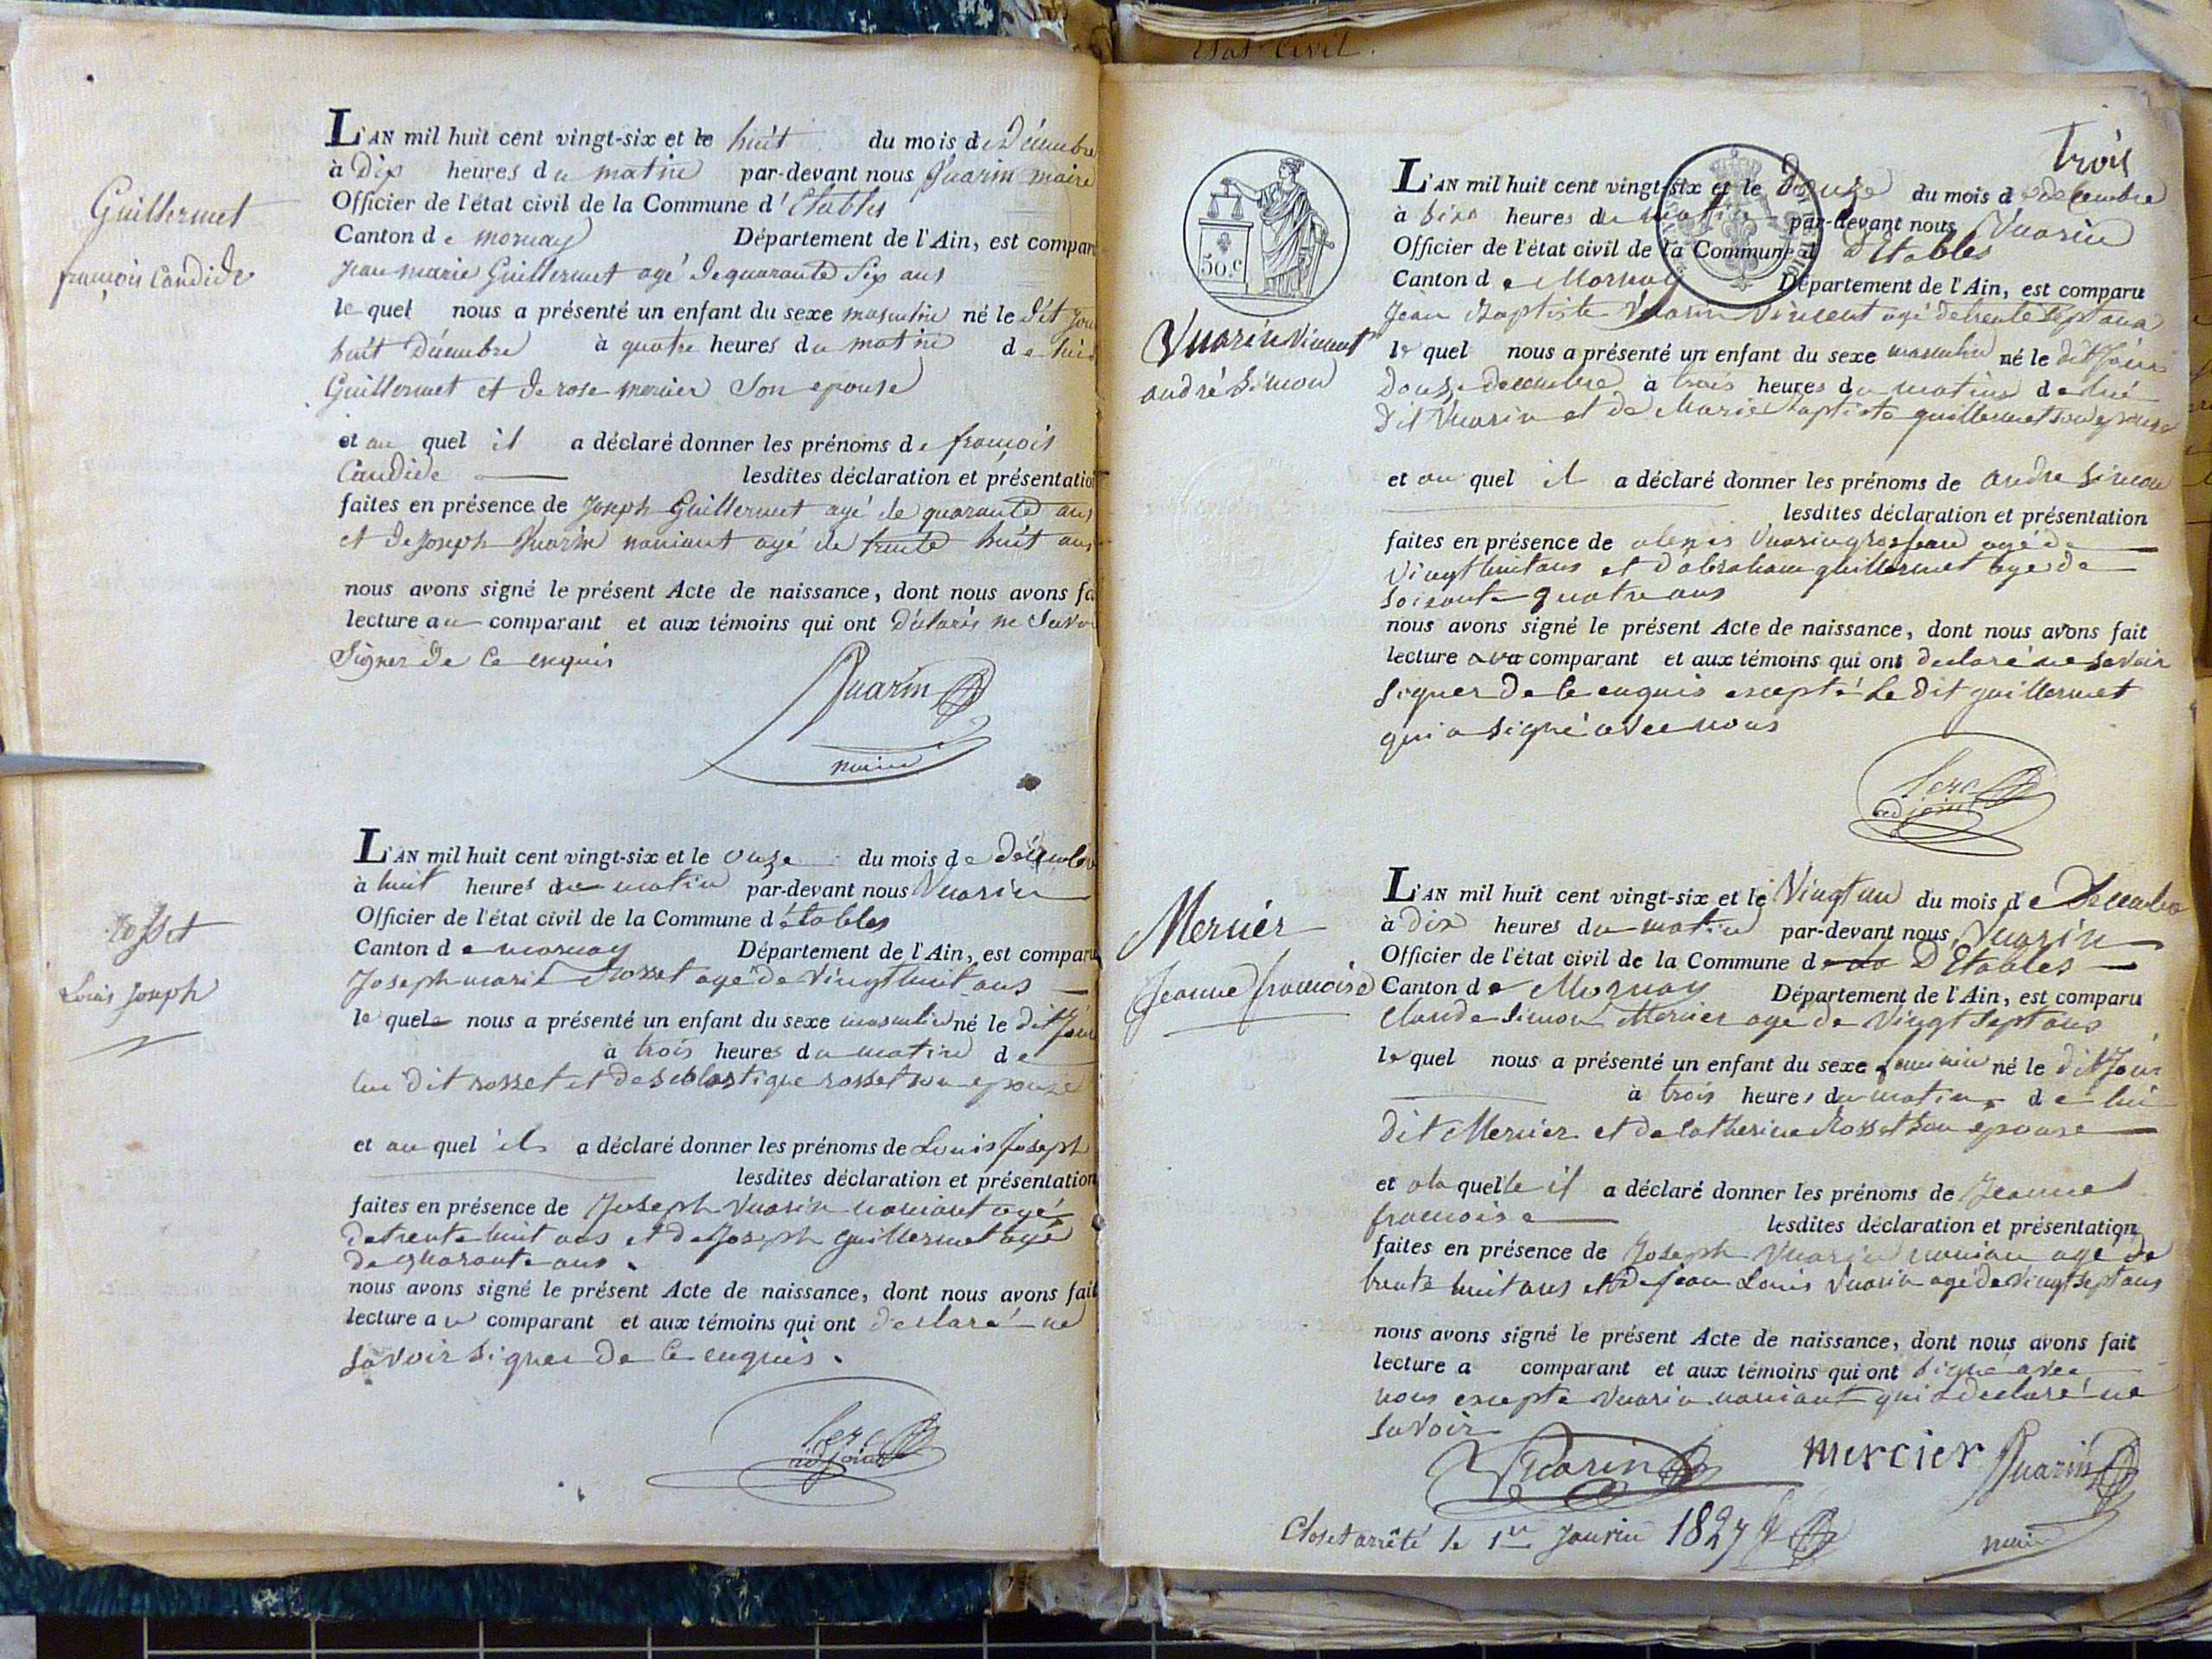 Etat Civil.
Guillermet
françois Candide
L'AN mil huit cent vingt-six et le huit du mois de Décembre
à Dix heures du matin par-devant nous Vuarin maire
Officier de l'état civil de la Commune d'Etables
Canton de mornay Département de l'Ain, est compar
Jean marie Guillermet agé de quarante Six ans
le quel nous a présenté un enfant du sexe masculin né le dit jour
huit Décembre à quatre heures du matin de lui
Guillermet et de rose mercier Son epouse
et au quel il a déclaré donner les prénoms de françois
Candide lesdites déclaration et présentation
faites en présence de Joseph Guillermet agé de quarante ans
et de Joseph Vuarin naniant agé de trente huit ans
nous avons signé le présent Acte de naissance, dont nous avons fa
lecture au comparant et aux témoins qui ont Déclaré ne Savoir
Signer de Ce enquis
Vuarin
maire
rosset
Louis Joseph
L'AN mil huit cent vingt-six et le onze du mois de décembre
à huit heures du matin par-devant nous Vuarin
Officier de l'état civil de la Commune d'étables
Canton de mornay Département de l'Ain, est comparu
Joseph marie Rosset agé de vingt huit ans
le quel nous a présenté un enfant du sexe masculin né le dit jour
à trois heures du matin de
lui dit rosset et de scolastique rosset son epouse
et au quel il a déclaré donner les prénoms de Louis Joseph
lesdites déclaration et présentation
faites en présence de Joseph Vuarin naniant agé
de trente huit ans et de Joseph guillermet agé
de quarante ans.
nous avons signé le présent Acte de naissance, dont nous avons fait
lecture au comparant et aux témoins qui ont declaré ne
savoir signer de Ce enquis.
adjoint
trois
50.c
Vuarin Vincent
andré Simon
L'AN mil huit cent vingt-six et le Douze du mois de decembre
à dix heures du matin par-devant nous Vuarin
Officier de l'état civil de la Commune d d'Etables
Canton de Mornay Département de l'Ain, est comparu
Jean Baptiste Vuarin Vincent agé de trente sept ans
le quel nous a présenté un enfant du sexe masculin né le dit jour
douze decembre à trois heures du matin de lui
dit Vuarin et de Marie Baptiste guillermet son epouse
et au quel il a déclaré donner les prénoms de andre Simon
lesdites déclaration et présentation
faites en présence de alexis Vuarin grosjean agé de
vingt huit ans et d'abraham guillermet agé de
soixante quatre ans
nous avons signé le présent Acte de naissance, dont nous avons fait
lecture au comparant et aux témoins qui ont declaré ne savoir
signer de Ce enquis excepté le dit guillermet
qui a signé avec nous
adjoint
Mercier
Jeanne françoise
L'AN mil huit cent vingt-six et le Vingt un du mois de Decembre
à dix heures du matin par-devant nous Vuarin
Officier de l'état civil de la Commune de D'Etables
Canton de Mornay Département de l'Ain, est comparu
Claude Simon Mercier agé de vingt Sept ans
le quel nous a présenté un enfant du sexe feminin né le dit jour
à trois heures du matin de lui
dit Mercier et de Catherine Rosset son epouse
et a la quelle il a déclaré donner les prénoms de Jeanne
francoise lesdites déclaration et présentation
faites en présence de Joseph Vuarin nanian agé de
trente huit ans et de jean Louis Vuarin agé de vingt sept ans
nous avons signé le présent Acte de naissance, dont nous avons fait
lecture a comparant et aux témoins qui ont signé avec
nous excepte Vuarin naniant qui a declaré ne
savoir
Vuarin mercier Vuarin
Clos et arrêté le 1er Janvier 1827 maire